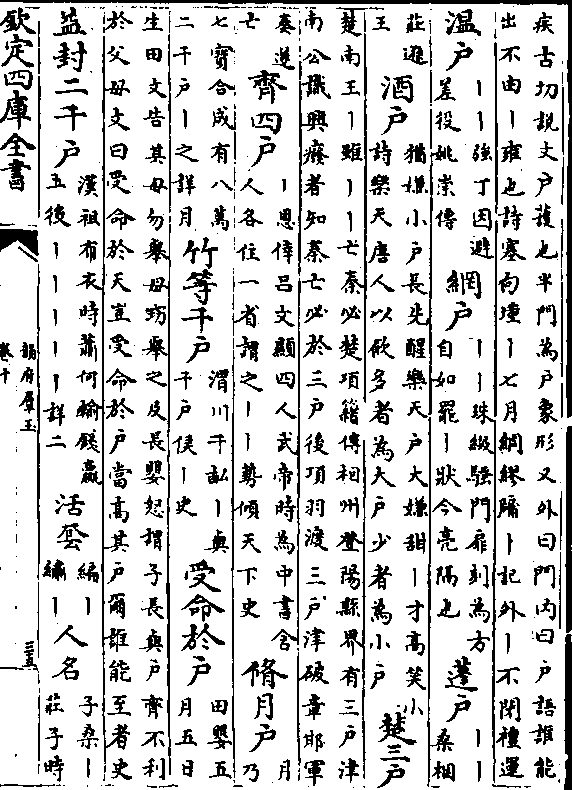 疾古切説文戶護也半門為戶象形又外曰門内曰戶語誰能
出不由丨雍也詩塞向墐丨七月綢繆牖丨記外丨不閉禮運
温戶 丨丨強丁因避
差役姚崇傳 網戶 丨丨珠綴騷門扉刻為方
自如罷丨狀今亮隔也 蓬戶 丨丨桑樞
莊遜
王 酒戶 猶嫌小戶長先醒樂天戶大嫌甜丨才高笑小
詩樂天唐人以飲多者為大戶少者為小戶 楚三戶
楚南王丨雖丨丨亡秦必楚項籍傳相州登陽縣界有三戶津
南公識興廢者知秦亡必於三戶後項羽渡三戶津破章邯軍
秦遂
亡 齊四戶 丨恩倖呂文顯四人武帝時為中書舍
人各住一省謂之丨丨勢傾天下史 脩月戶 月
乃
七寶合成有八萬
二千戶丨之詳月 竹等千戶 渭川千畝丨與
千戶侯丨史 受命於戶 田嬰五
月五日
生田文告其母勿舉母竊舉之及長嬰怒謂子長與戶齊不利
於父母文曰受命於天豈受命於戶當高其戶爾誰能至者史
益封二千戶 漢祖有衣時蕭何輸錢贏
五後丨丨丨丨丨詳二 活套 編丨
繡丨 人名 子桑丨
莊子時
欽定四庫全書
韻府羣玉
卷十
三五